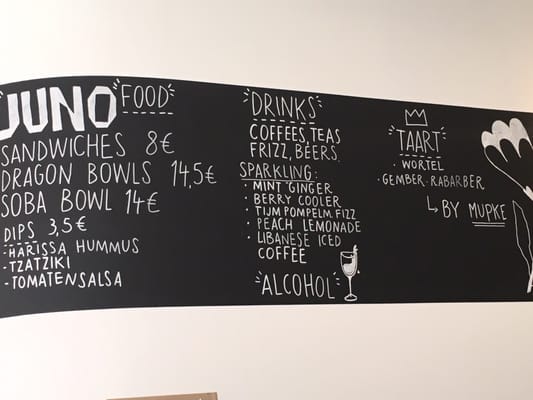 JUNO
FOOD
SANDWICHES 8€
DRAGON BOWLS 14,5€
SOBA BOWL 14€
DIPS 3,5€
-HARISSA HUMMUS
-TZATZIKI
-TOMATENSALSA
DRINKS
COFFEES, TEAS
FRIZZ, BEERS.
SPARKLING:
· MINT GINGER
· BERRY COOLER
· TIJM POMPELM. FIZZ
· PEACH LEMONADE
· LIBANESE ICED
COFFEE
ALCOHOL
TAART
· WORTEL
· GEMBER-RABARBER
↳ BY MUPKE